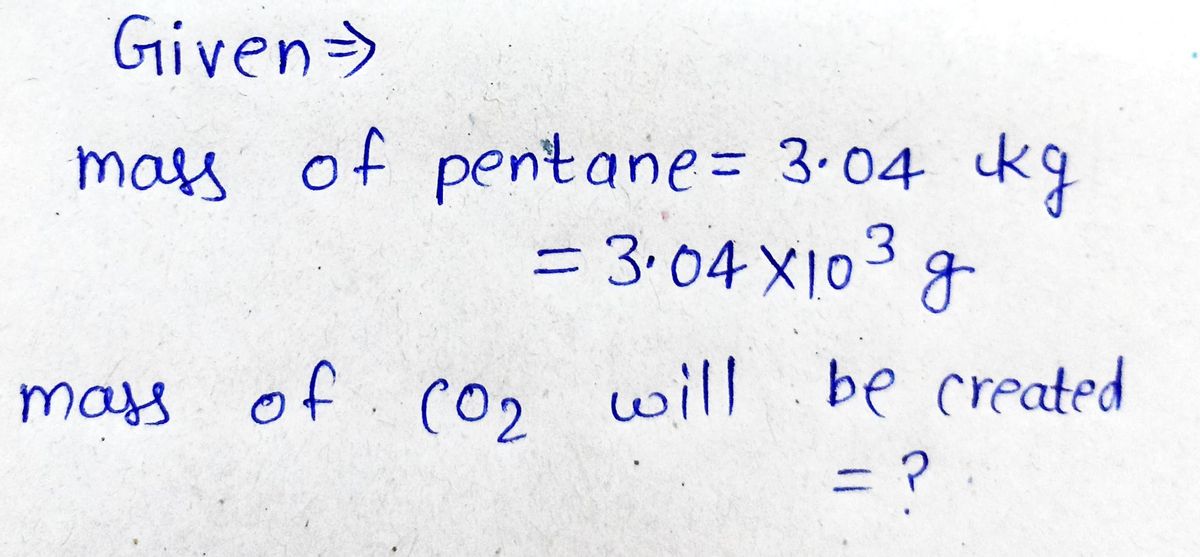 Given ⇒
mass of pentane = 3.04 kg
= 3.04 X10³ g
mass of CO₂ will be created
= ?